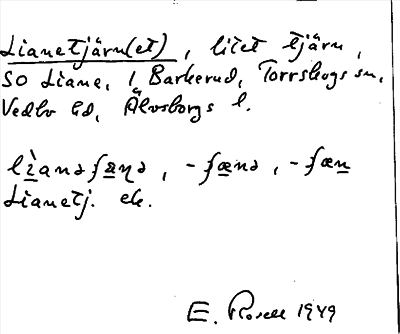 Lianetjärn(et), litet tjärn,
SO Liane, i Bäckerud, Torrskogs sn,
Vedbo hd, Älvsborgs l.
lìanəʃæɳə, -ʃænə, -ʃæn
Lianetj. ek.
E. Rosell 1949